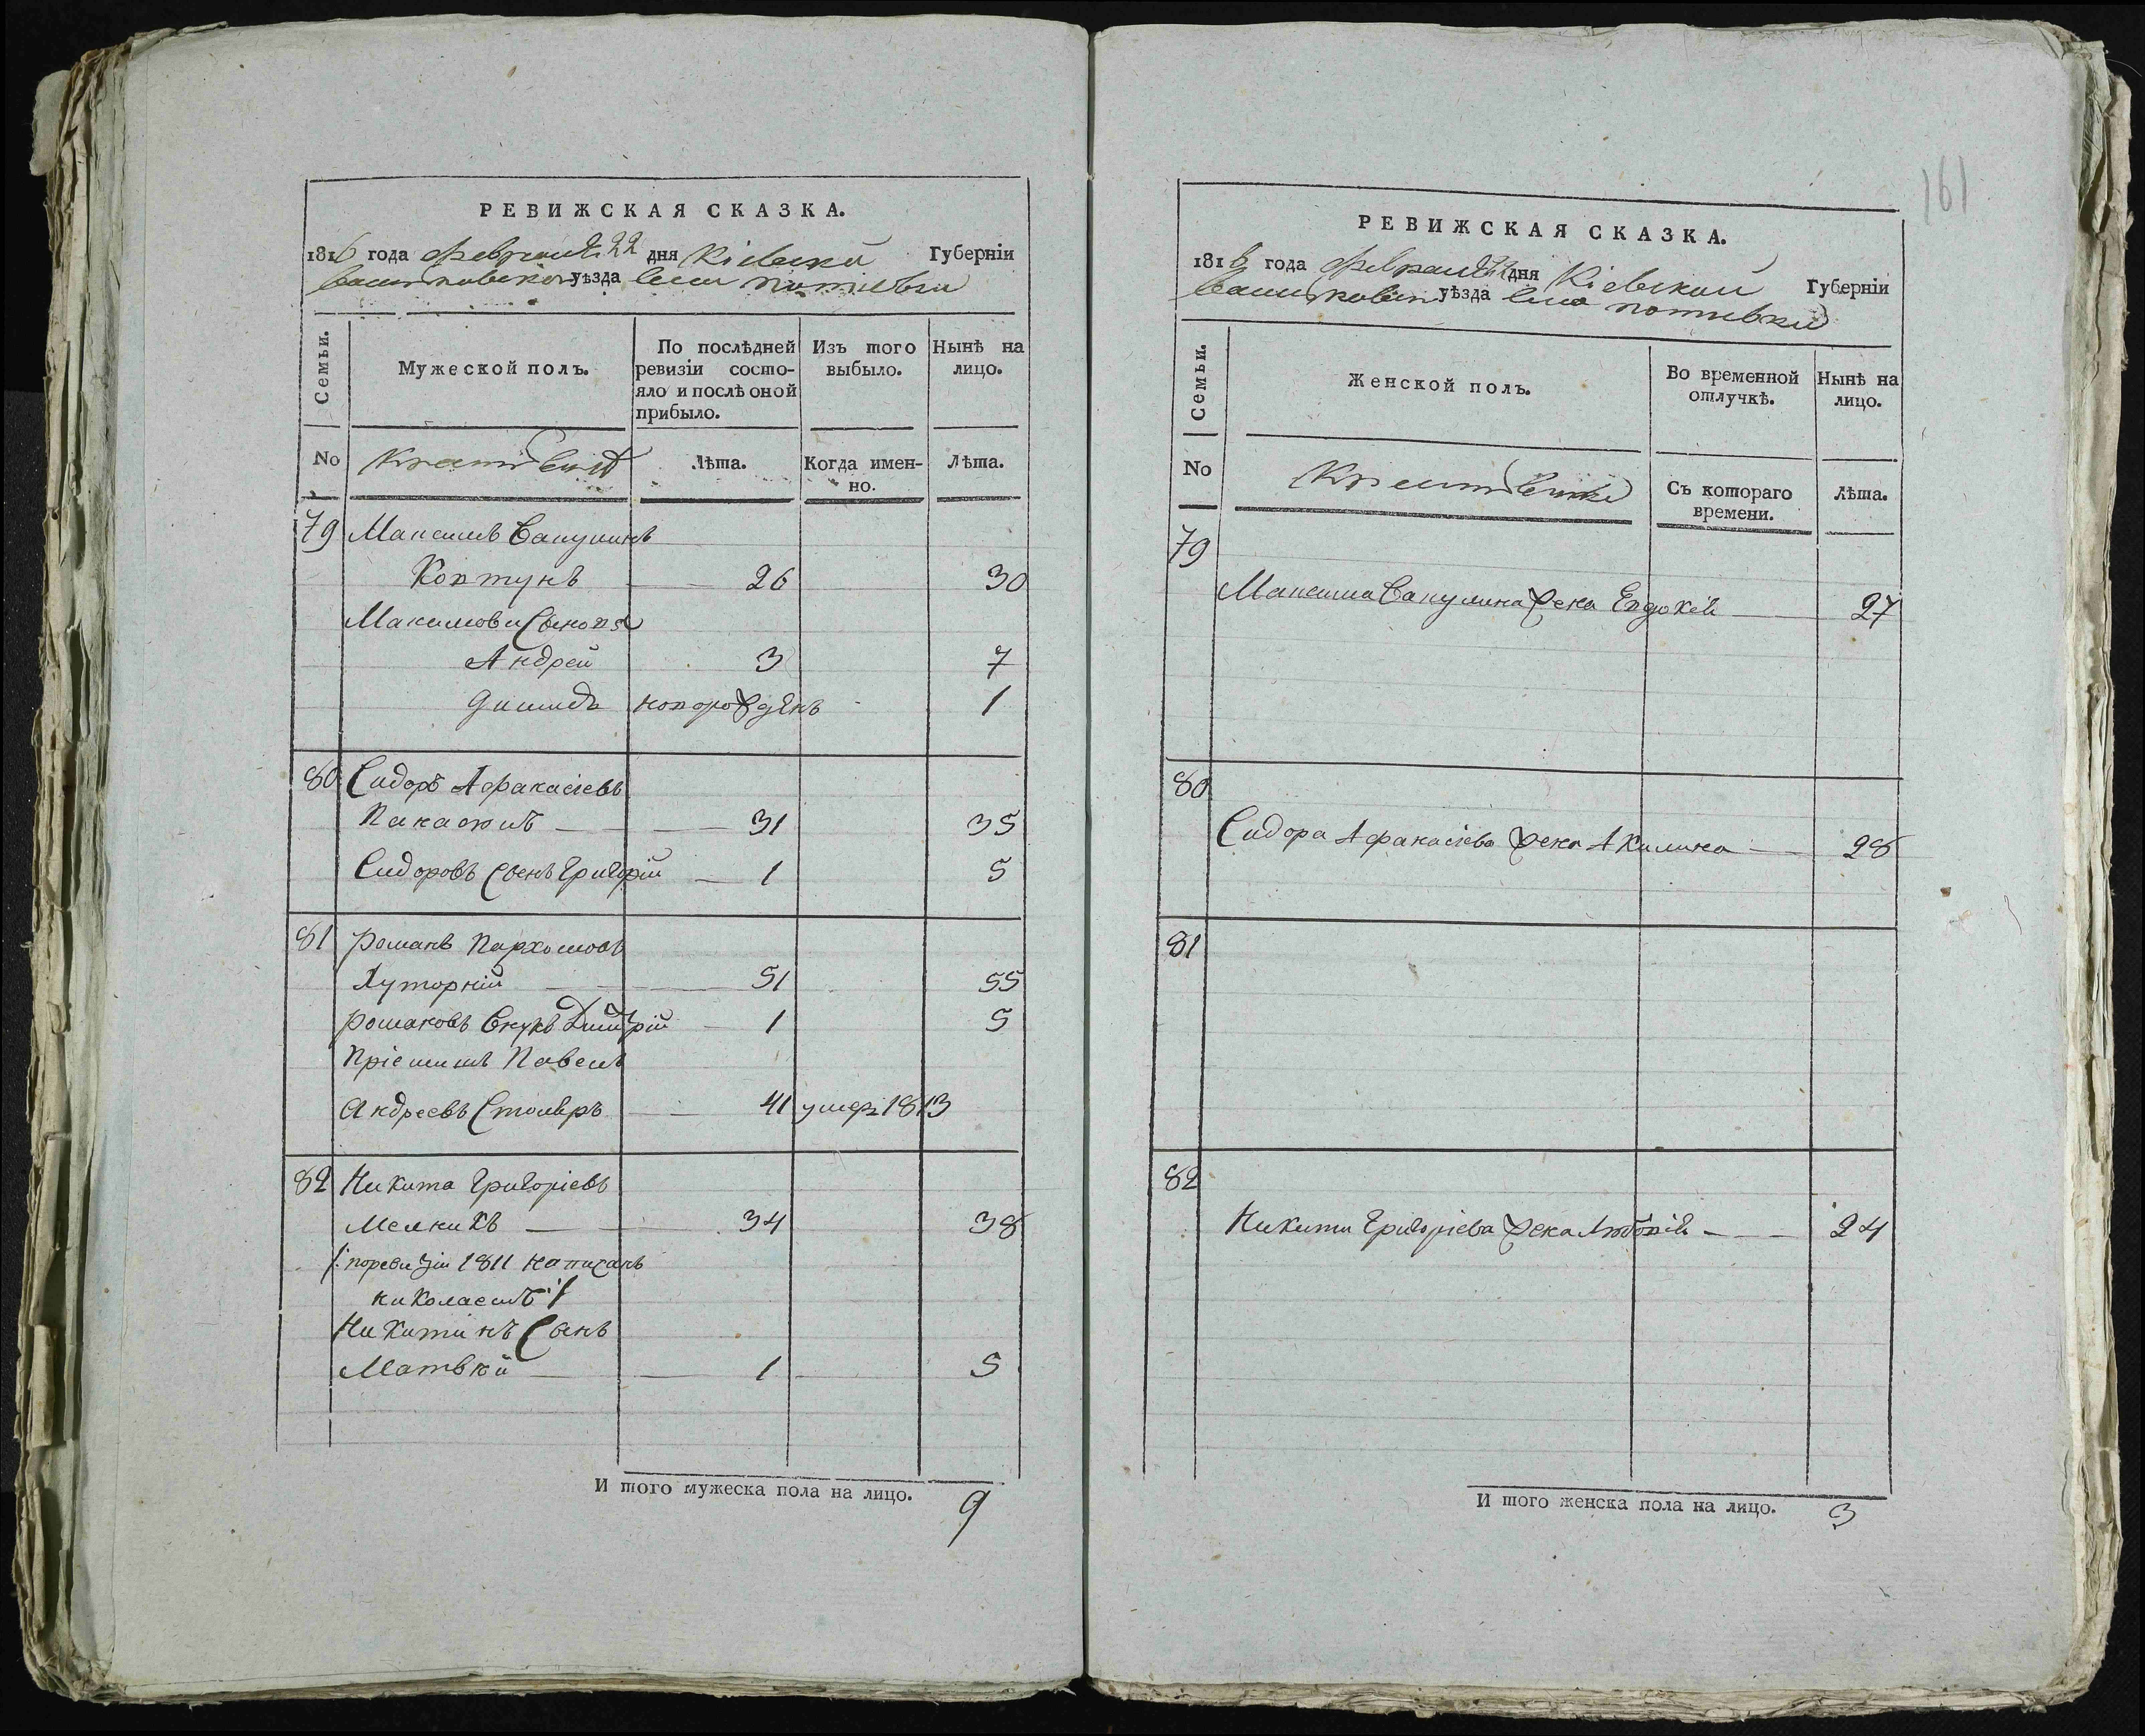 РЕВИЖСКАЯ СКАЗКА.
1816 года февраля 22 дня Кіевской Губерніи
Васильковского уѣзда села
Семьи.
Мужеской полъ.
По послѣдней ревизіи состо-яло и послѣ оной прибыло.
Изъ того выбыло.
Нынѣ на лицо.
No
Лѣта.
Когда имен-но.
Лѣта.
79 Максимъ Вакулинъ
Ковтунъ 26 30
Максимови Сыновя
Андрей 3 7
новорожденъ 1
80 Сидоръ Афанасіевъ
31 35
Сидоровъ Сынъ Григорій 1 5
81 Романъ Пархомовъ
Хуторній 51 55
Романовъ Внукъ Димитрій 1 5
Пріемишъ Павелъ
Андреевъ Столяръ 41 умеръ 1813
82 Никита Григоріевъ
Мелникъ 34 38
/: по ревизіи 1811 написанъ
николаемъ :/
Никитинъ Сынъ
Матвѣй 1 5
И того мужеска пола на лицо. 9
161
РЕВИЖСКАЯ СКАЗКА.
1816 года февраля 22 дня Кіевской Губерніи
Васильковского уѣзда села
Семьи.
Женской полъ.
Во временной отлучкѣ.
Нынѣ на лицо.
No
Съ котораго времени.
Лѣта.
79
Максима Вакулина жена Евдокія 27
80
Сидора Афанасіева жена Акилина 28
81
82
Никити Григоріева жена Любовія 24
И того женска пола на лицо. 3